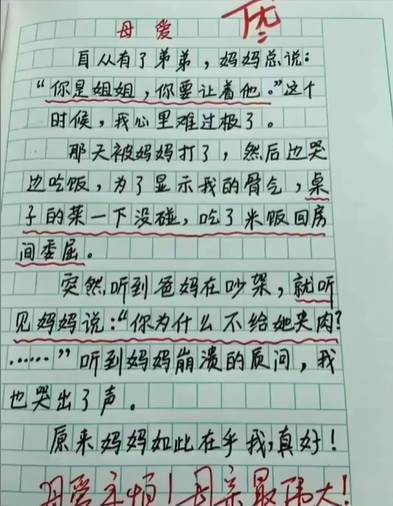 母爱
优
自从有了弟弟，妈妈总说：
“你是姐姐，你要让着他。”这个
时候，我心里难过极了。
那天被妈妈打了，然后边哭
边吃饭，为了显示我的骨气，桌
子的菜一下没碰，吃了米饭回房
间委屈。
突然听到爸妈在吵架，就听
见妈妈说：“你为什么不给她夹肉？
……”听到妈妈崩溃的质问，我
也哭出了声。
原来妈妈如此在乎我，真好！
母爱永恒！母亲最伟大！